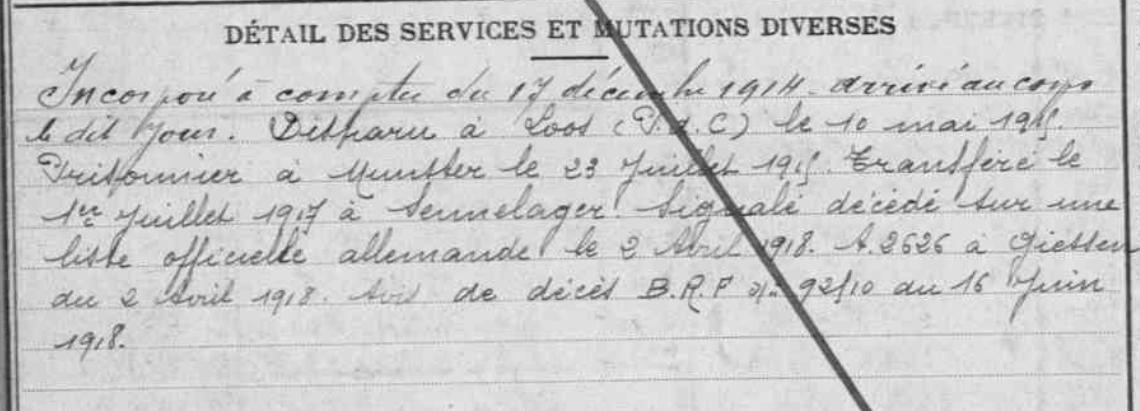 DÉTAIL DES SERVICES ET MUTATIONS DIVERSES
Incorporé à compter du 17 décembre 1914. arrivé au corps
le dit jour. Disparu à Loos (P.d.C) le 10 mai 1915.
Prisonnier à Munster le 23 Juillet 1915. Transféré le
1er Juillet 1917 à Sennelager. Signalé décédé sur une
liste officielle allemande le 2 Avril 1918. A.2626 à Giessen
du 2 Avril 1918. Avis de décès B.R.F 92510 du 16 Juin
1918.